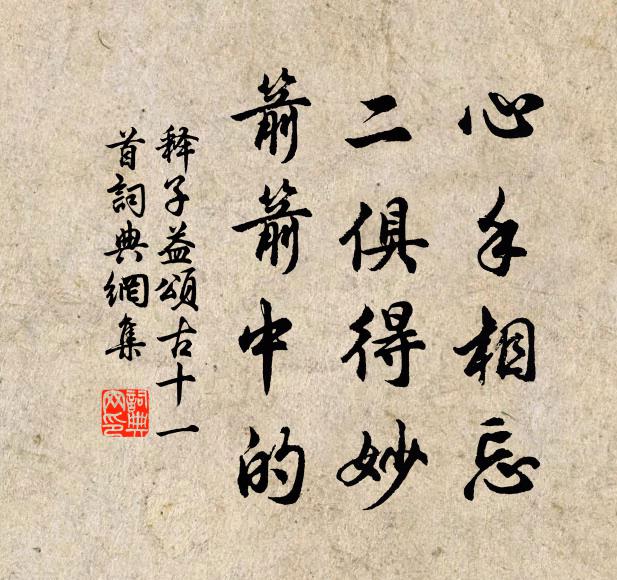 心手相忘
二俱得妙
箭箭中的
释子益頌古十一
首詞典網集
詞典網印